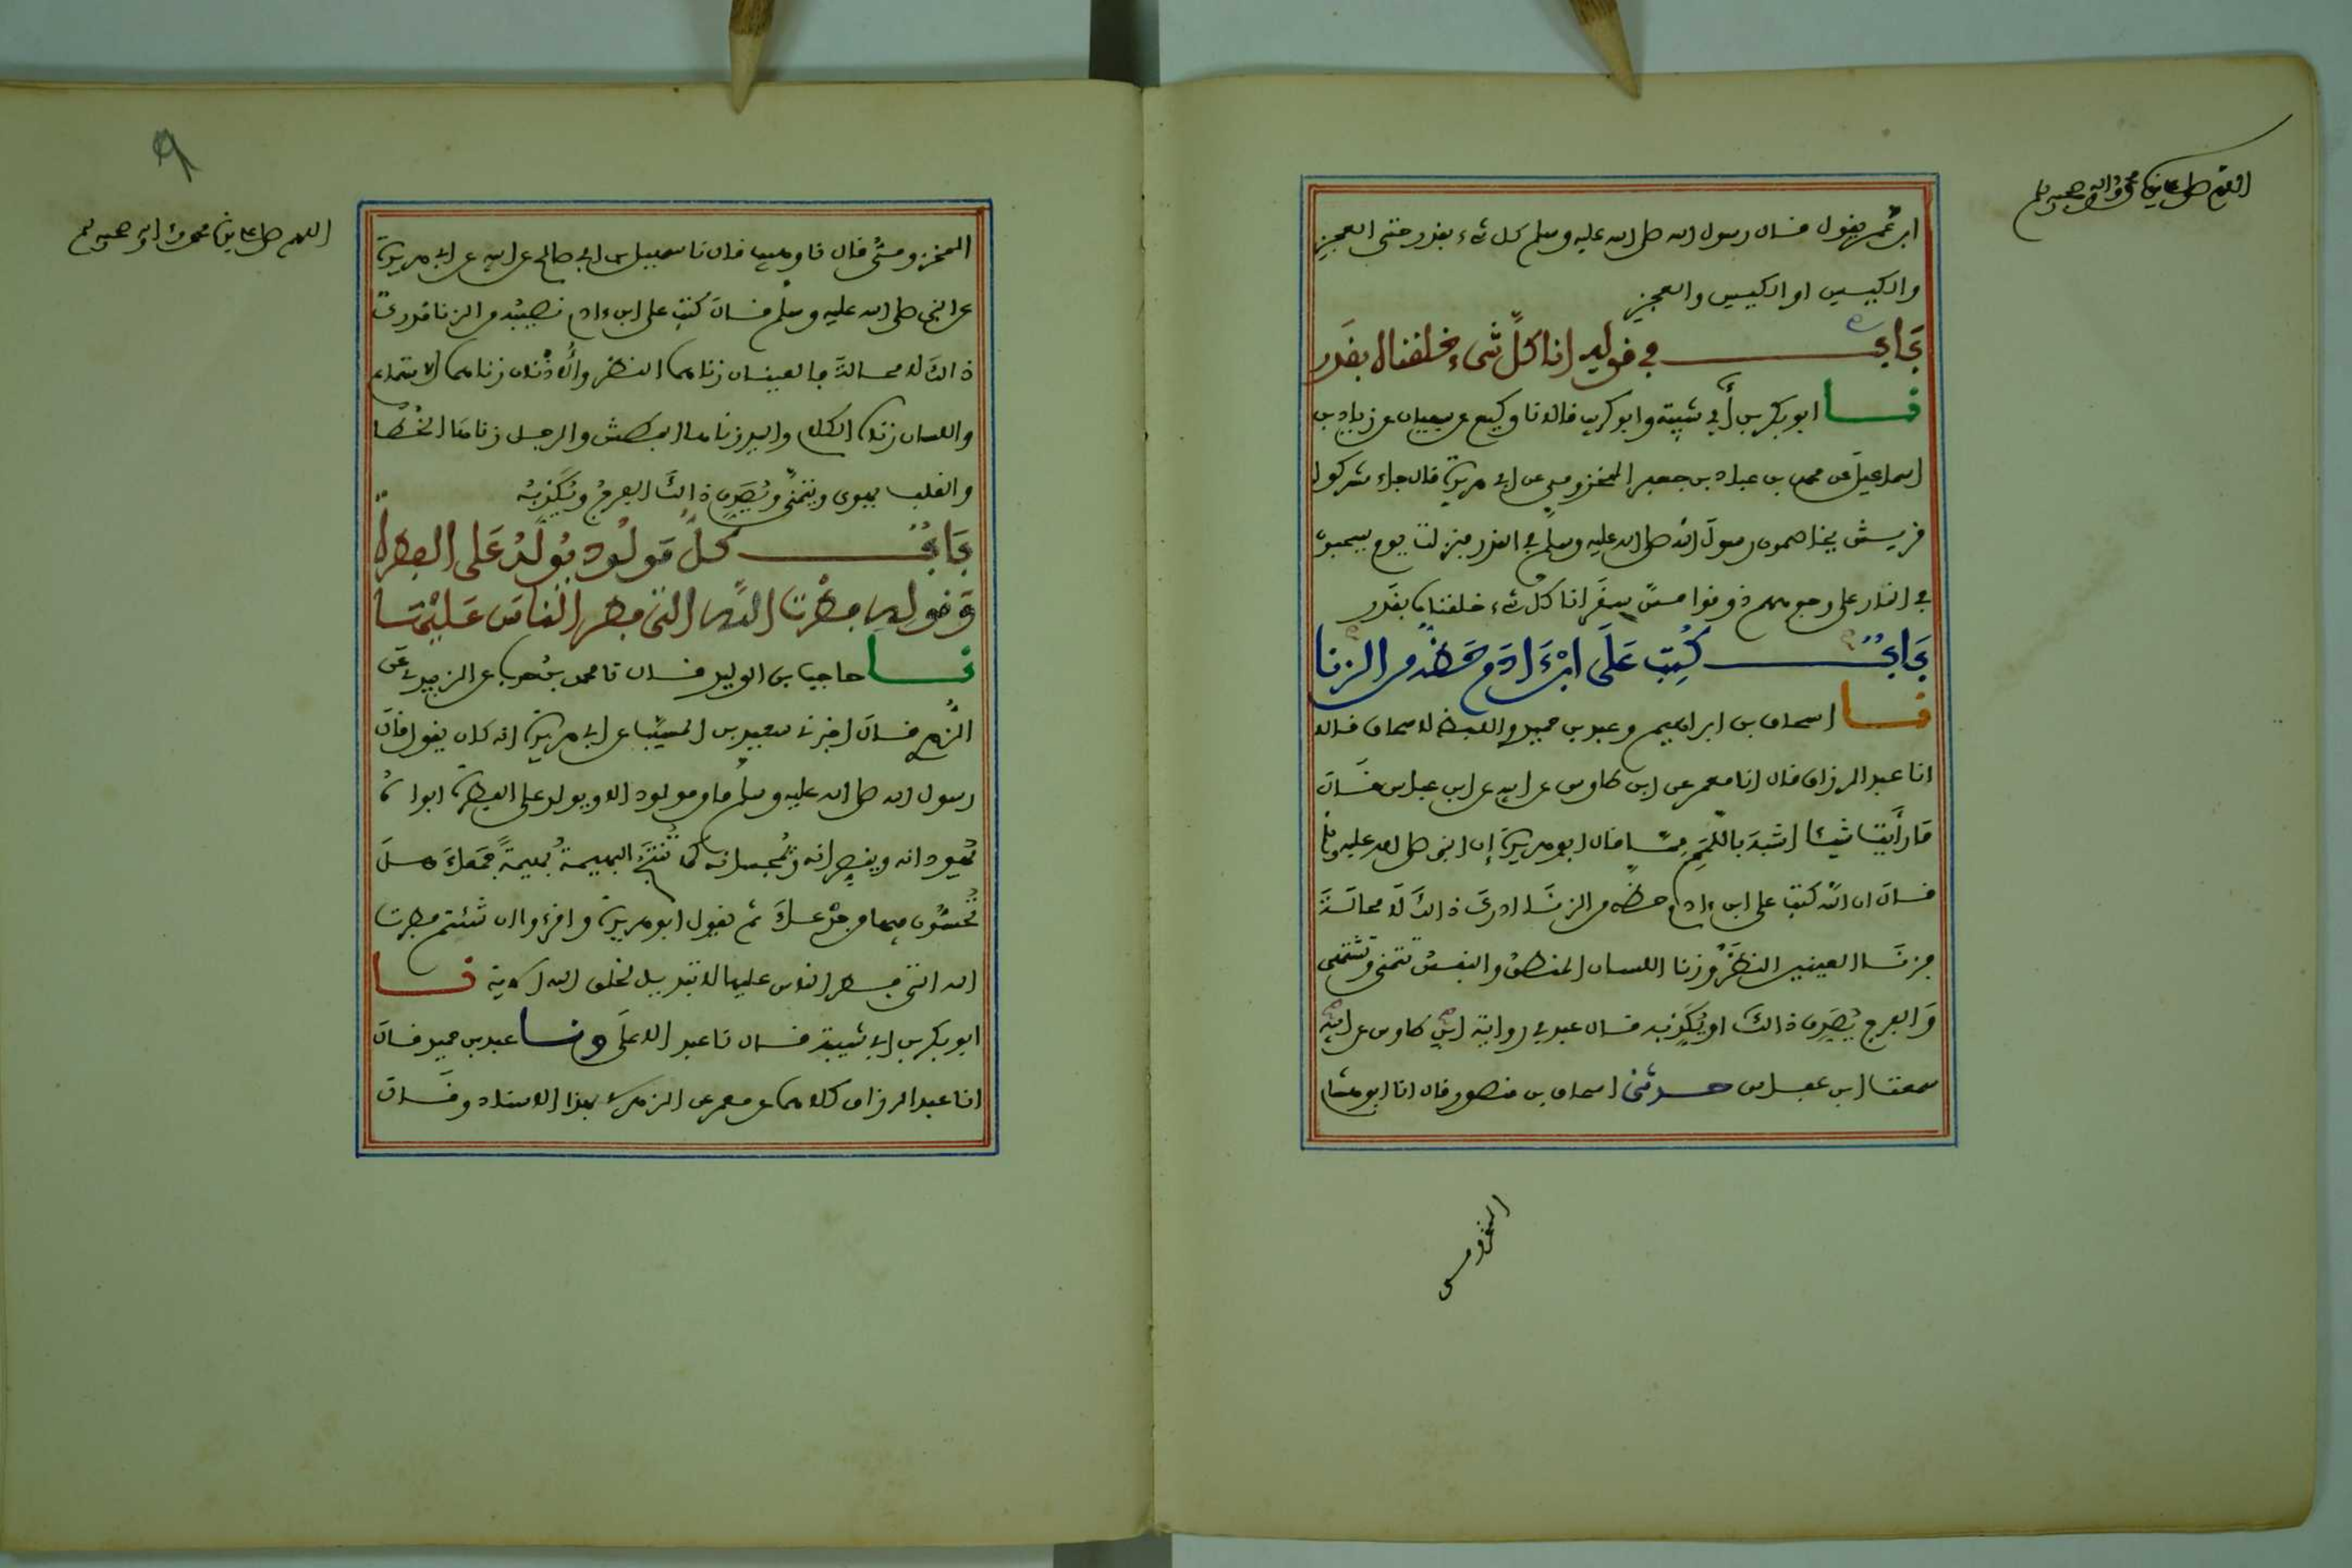 اللهم صل على سيدنا محمد وءاله وصحبه وسلم
ابن عمر يقول قال رسول الله صلى الله عليه وسلم كل شيء بقدر حتى العجز
والكيس او الكيس والعجز
باب في قوله انا كل شيء خلقناه بقدر
نا ابو بكر بن أبي شيبة وابو كريب قالا نا وكيع عن سفيان عن زياد بن
اسماعيل عن محمد بن عباد بن جعفر المخزومي عن ابي هريرة قال جاء مشركوا
قريش يخاصمون رسول الله صلى الله عليه وسلم في القدر فنزلت يوم يسحبون
في النار على وجوههم ذوقوا مس سقر انا كل شيء خلقناه بقدر
باب كتب على ابن ءادم حظه من الزنا
نا اسحاق بن ابراهيم وعبد بن حميد واللفظ لاسحاق قالا
انا عبد الرزاق قال انا معمر عن ابن طاوس عن ابيه عن ابن عباس قال
ما رأيت شيئا اشبه باللمم مما قال ابو هريرة إن النبي صلى الله عليه وسلم
قال ان الله كتب على ابن ءادم حظه من الزنا ادرك ذالك لا محالة
فزنا العينين النظر وزنا اللسان المنطق والنفس تتمنى وتشتهي
والفرج يصدق ذالك او يكذبه قال عبد في رواية ابن طاوس عن ابيه
سمعت ابن عباس حدثني اسحاق بن منصور قال انا ابو هشام
المخزومي
اللهم صل على سيدنا محمد وءاله وصحبه وسلم
٩
المخزومي قال نا وهيب قال نا سهيل بن ابي صالح عن ابيه عن ابي هريرة
عن النبي صلى الله عليه وسلم قال كتب على ابن ءادم نصيبه من الزنا مدرك
ذالك لا محالة فالعينان زناهما النظر والاذنان زناهما الاستماع
واللسان زناه الكلام واليد زناها البطش والرجل زناها الخطا
والقلب يهوى ويتمنى ويصدق ذالك الفرج ويكذبه
باب كل مولود يولد على الفطرة
وقوله فطرت الله التي فطر الناس عليها
نا حاجب بن الوليد قال نا محمد بن حرب عن الزبيدي عن
الزهري قال اخبرني سعيد بن المسيب عن ابي هريرة انه كان يقول قال
رسول الله صلى الله عليه وسلم ما من مولود الا ويولد على الفطرة ابواه
يهودانه وينصرانه ويمجسانه كما تنتج البهيمة بهيمة جمعاء هل
تحسون فيها من جدعاء ثم يقول ابو هريرة واقرءوا ان شئتم فطرت
الله التي فطر الناس عليها لا تبديل لخلق الله الاية نا
ابو بكر بن ابي شيبة قال نا عبد الاعلى ونا عبد بن حميد قال
انا عبد الرزاق كلاهما عن معمر عن الزهري بهذا الاسناد وقال